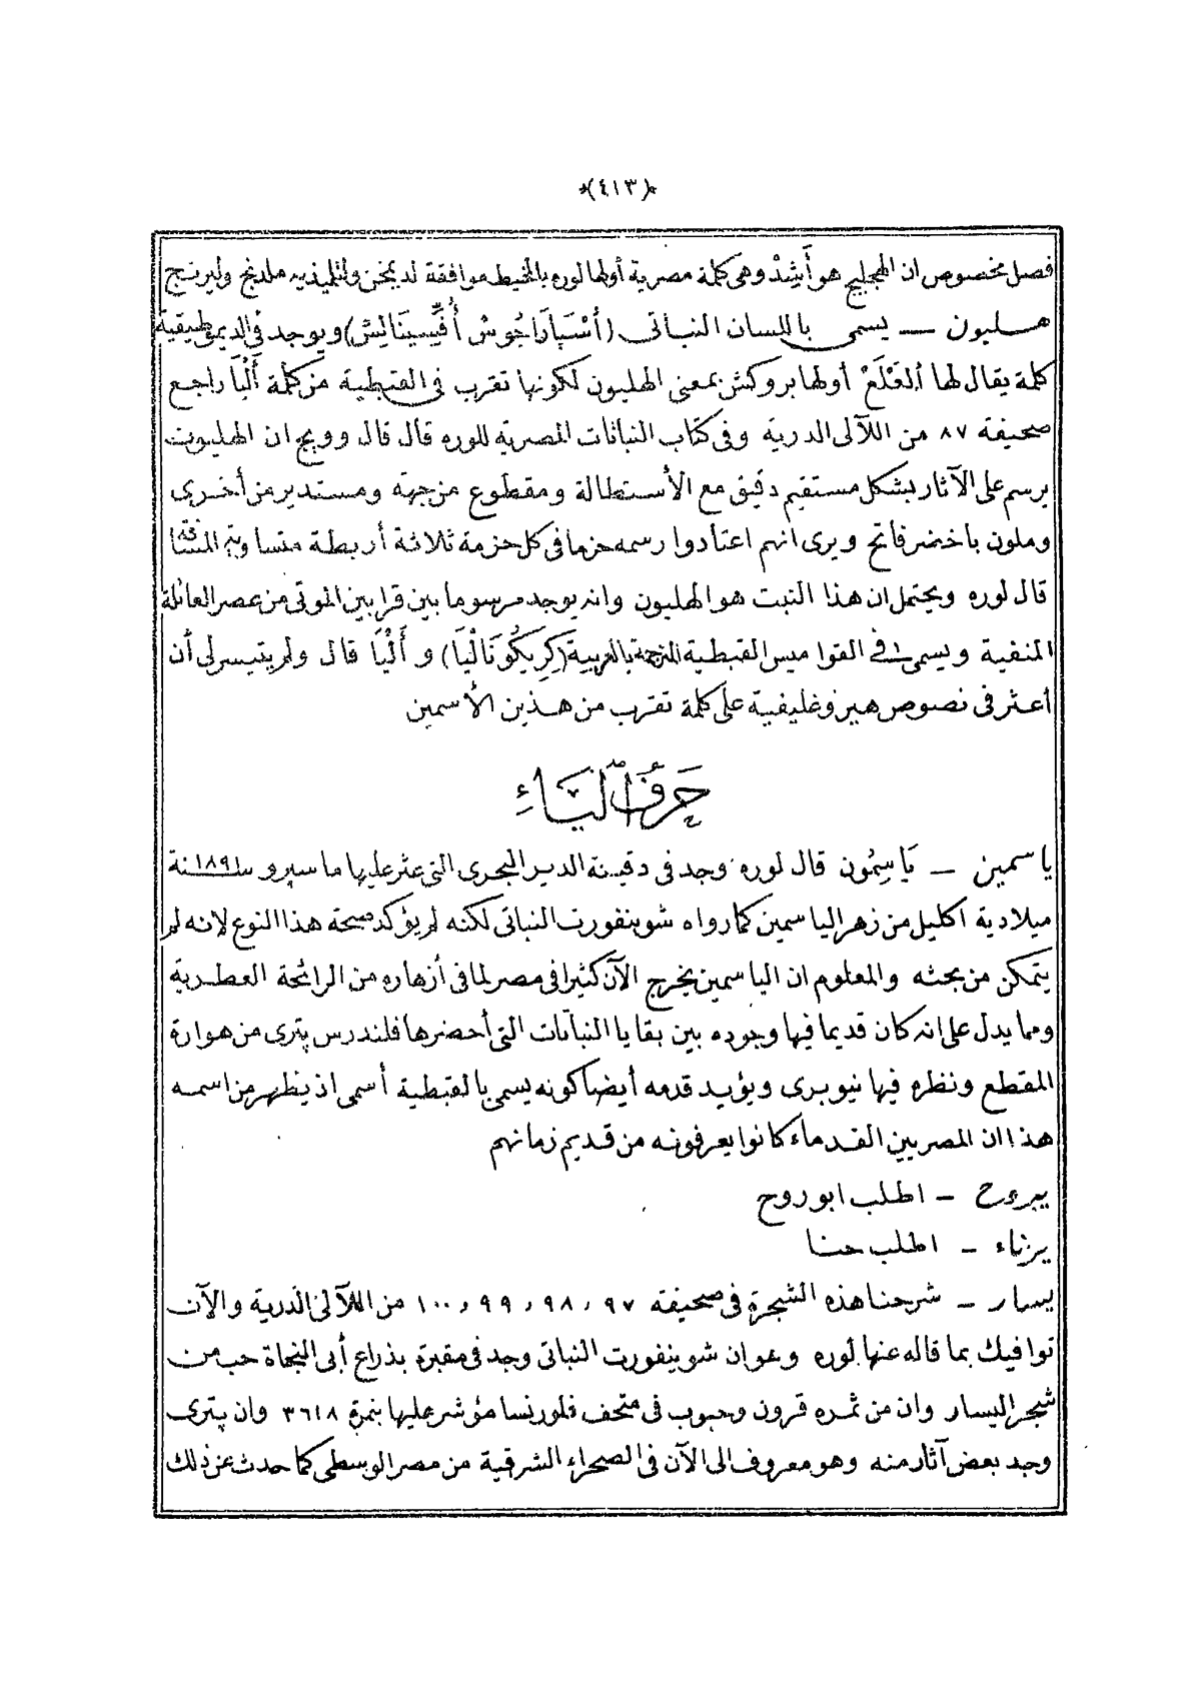 ﴿٤١٣﴾
فصل مخصوص ان الهجليج هو أَشِدْ وهى كلمة مصرية أولها لوره بالمخيط موافقة لديمخن ولتلميذيه ملدنج وليرنج
هليون — يسمى باللسان النباتى (أسْبَارَاجُوسْ أُفِّيسِينَالِيسْ) ويوجد فى الديموطيقية
كلمة يقال لها ألعَْلَعْ أولها بروكش بمعنى الهليون لكونها تقرب فى القبطية من كلمة أَلْيَا راجع
صحيفة ٨٧ من اللآلى الدرية وفى كتاب النباتات المصرية للوره قال قال وويج ان الهليون
يرسم على الآثار بشكل مستقيم دقيق مع الأستطالة ومقطوع من جهة ومستدير من أخرى
وملون باخضر فاتح ويرى انهم اعتادوا رسمه حزما فى كل حزمة ثلاثة أربطة متساوية المسافة
قال لوره ويحتمل ان هذا النبت هو الهليون وانه يوجد مرسوما بين قرابين الموتى من عصر العائلة
المنفية ويسمى فى القواميس القبطية المترجمة بالعربية (كِرِيكُونَالْيَا) و أَلْيَا قال ولم يتيسر لى أن
أعثر فى نصوص هيروغليفية على كلمة تقرب من هذين الأسمين
حَرفُ اليَاءِ
ياسمين — يَاسِمُون قال لوره وجد فى دفينة الدير البحرى التى عثر عليها ماسپرو سنة ١٨٩١
ميلادية اكليل من زهر الياسمين كما رواه شوينفورت النباتى لكنه لم يؤكد صحة هذا النوع لانه لم
يتمكن من بحثه والمعلوم ان الياسمين يخرج الآن كثيرا فى مصر لما فى أزهاره من الرائحة العطرية
ومما يدل على انه كان قديما فيها وجوده بين بقايا النباتات التى أحضرها فلندرس پترى من هوارة
المقطع ونظره فيها نيوبرى ويؤيد قدمه أيضا كونه يسمى بالقبطية أسمى اذ يظهر من اسمه
هذا ان المصريين القدماء كانوا يعرفونه من قديم زمانهم
يبروح — اطلب ابوروح
يرناء — اطلب حنا
يسار — شرحنا هذه الشجرة فى صحيفة ٩٧ , ٩٨ , ٩٩ , ١٠٠ من اللآلئ الدرية والآن
نوافيك بما قاله عنها لوره وهو ان شوينفورت النباتى وجد فى مقبرة بذراع أبى النجاة حب من
شجر اليسار وان من ثمره قرون وحبوب فى متحف فلورنسا مؤشر عليها بنمرة ٣٦١٨ وان پترى
وجد بعض آثار منه وهو معروف الى الآن فى الصحراء الشرقية من مصر الوسطى كما حدث عن ذلك